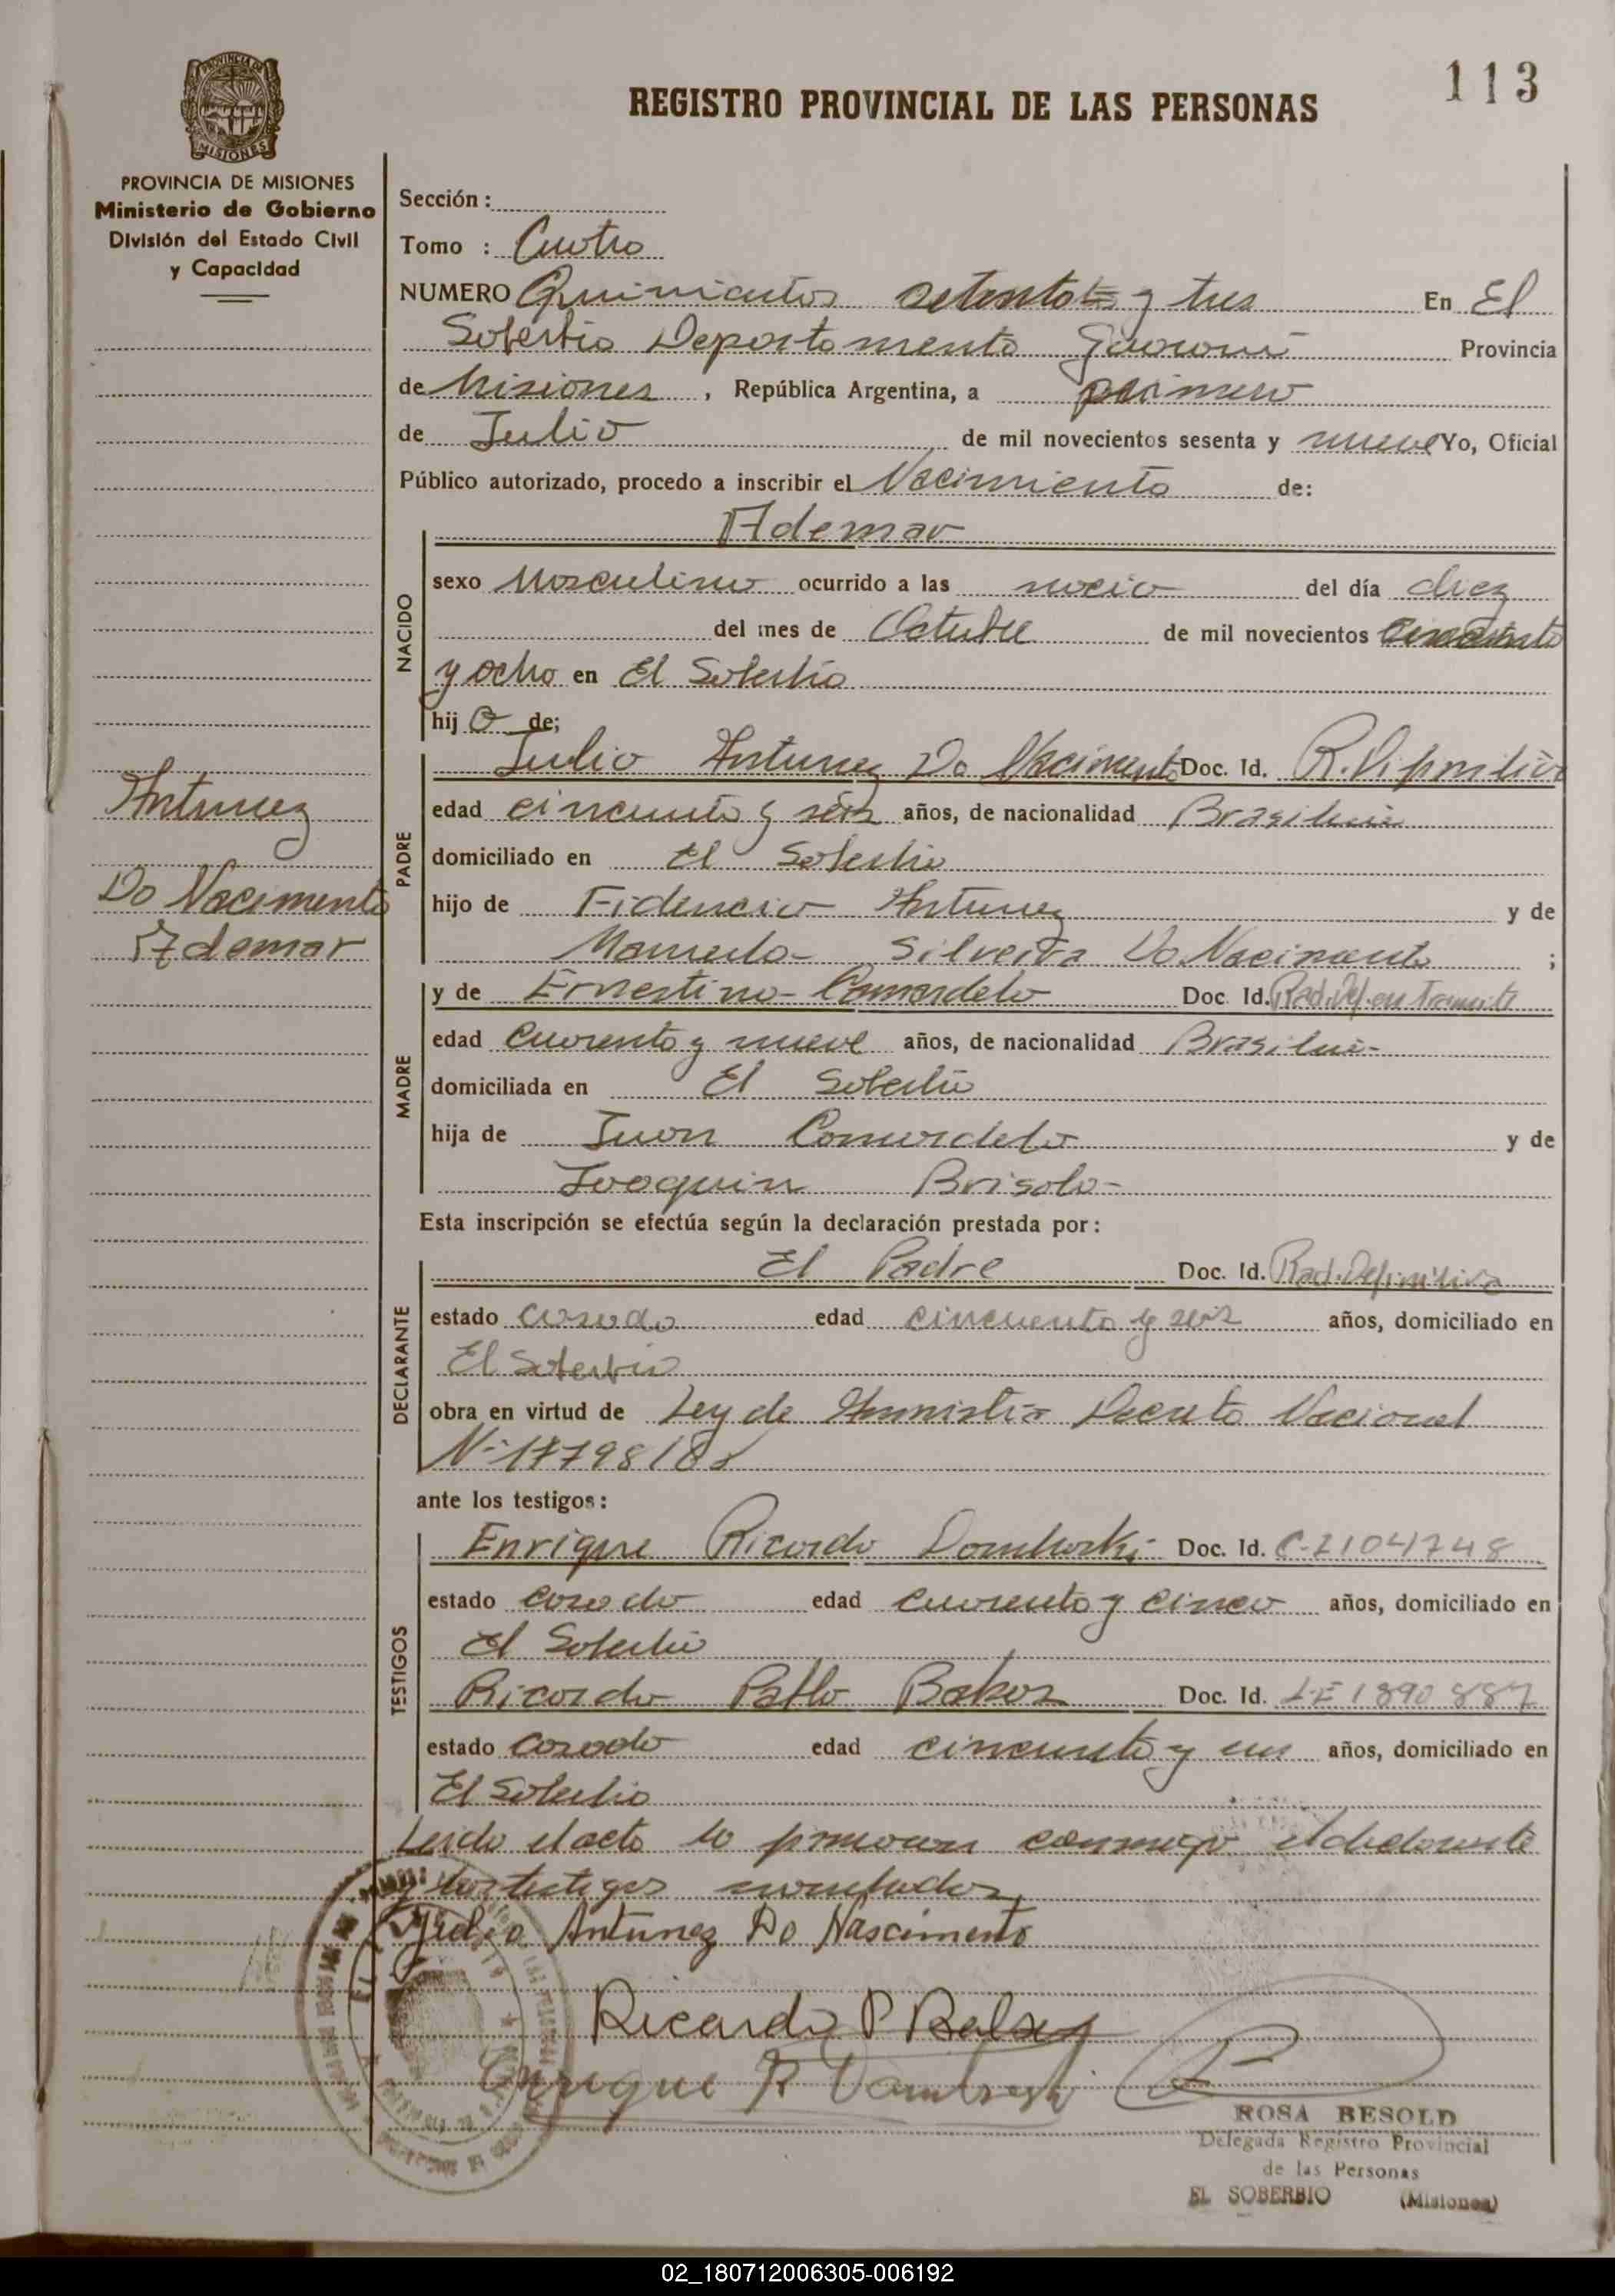 113
REGISTRO PROVINCIAL DE LAS PERSONAS
PROVINCIA DE MISIONES
MISIONES
PROVINCIA DE MISIONES
Ministerio de Gobierno
División del Estado Civil
y Capacidad
Sección :
Tomo : Cuatro
NUMERO Quinientos setenta y tres En El
Soberbio Departamento Guaraní Provincia
de Misiones , República Argentina, a primero
de Julio de mil novecientos sesenta y nueve Yo, Oficial
Público autorizado, procedo a inscribir el Nacimiento de:
Ademar
NACIDO
sexo Masculino ocurrido a las del día diez
del mes de Octubre de mil novecientos cincuenta
y ocho en El Soberbio
hij o de;
Antunez
Do Nacimento
Ademar
PADRE
Julio Antunez Do Nacimento Doc. Id. R. Difinitiva
edad cincuenta y seis años, de nacionalidad Brasilera
domiciliado en El Soberbio
hijo de Fidencio Antunez y de
Silveira Do Nacimento ;
MADRE
y de Ernestina Doc. Id. Rad. Def. en Tramite
edad cuarenta y nueve años, de nacionalidad Brasilera
domiciliada en El Soberbio
hija de Juan y de
Joaquin Brisola
Esta inscripción se efectúa según la declaración prestada por :
DECLARANTE
El Padre Doc. Id. Rad. Definitiva
estado casado edad cincuenta y seis años, domiciliado en
El Soberbio
obra en virtud de Ley de Amnistia Decreto Nacional
Nº 17798/68
ante los testigos :
TESTIGOS
Enrique Ricardo Doc. Id. C. 2104748
estado casado edad cuarenta y cinco años, domiciliado en
El Soberbio
Ricardo Pablo Doc. Id. L-E 1890887
estado casado edad cincuenta y un años, domiciliado en
El Soberbio
Leida el acta la firman conmigo el declarante
y los testigos nombrados
Julio Antunez Do Nascimento
Ricardo P
Enrique R
ROSA BESOLD
Delegada Registro Provincial
de las Personas
EL SOBERBIO (Misiones)
02_180712006305-006192